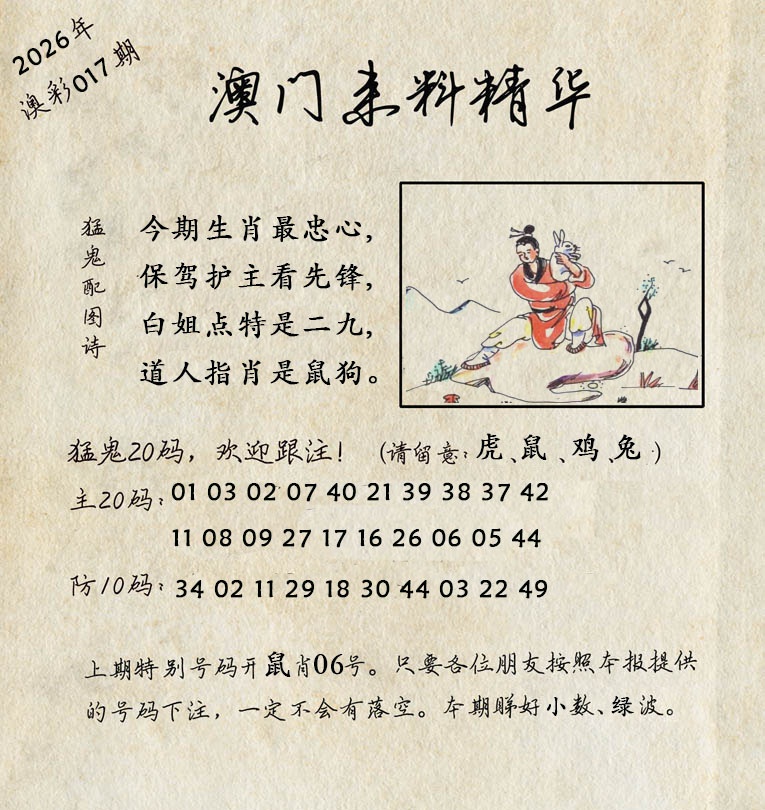 2026年
澳彩017期
澳门来料精华
猛鬼配图诗
今期生肖最忠心，
保驾护主看先锋，
白姐点特是二九，
道人指肖是鼠狗。
猛鬼20码，欢迎跟注！（请留意：虎、鼠、鸡、兔、）
主20码：01 03 02 07 40 21 39 38 37 42
11 08 09 27 17 16 26 06 05 44
防10码：34 02 11 29 18 30 44 03 22 49
上期特别号码开鼠肖06号。只要各位朋友按照本报提供
的号码下注，一定不会有落空。本期睇好小数、绿波。